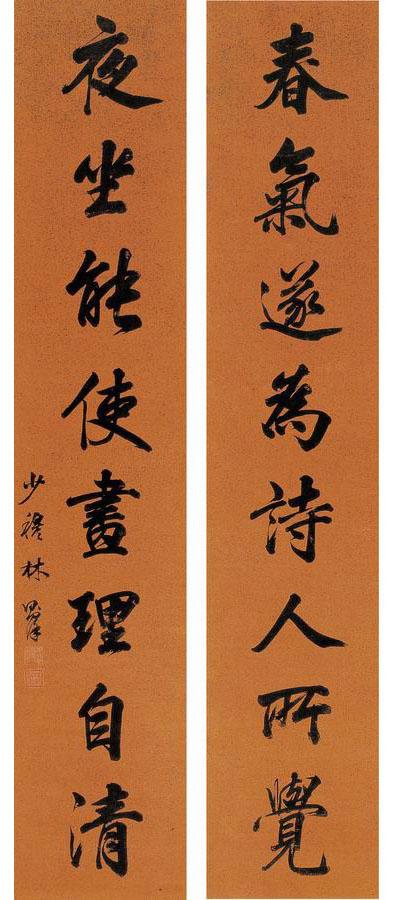 春氣遂為詩人所覺
夜坐能使畫理自清
少穆林則徐